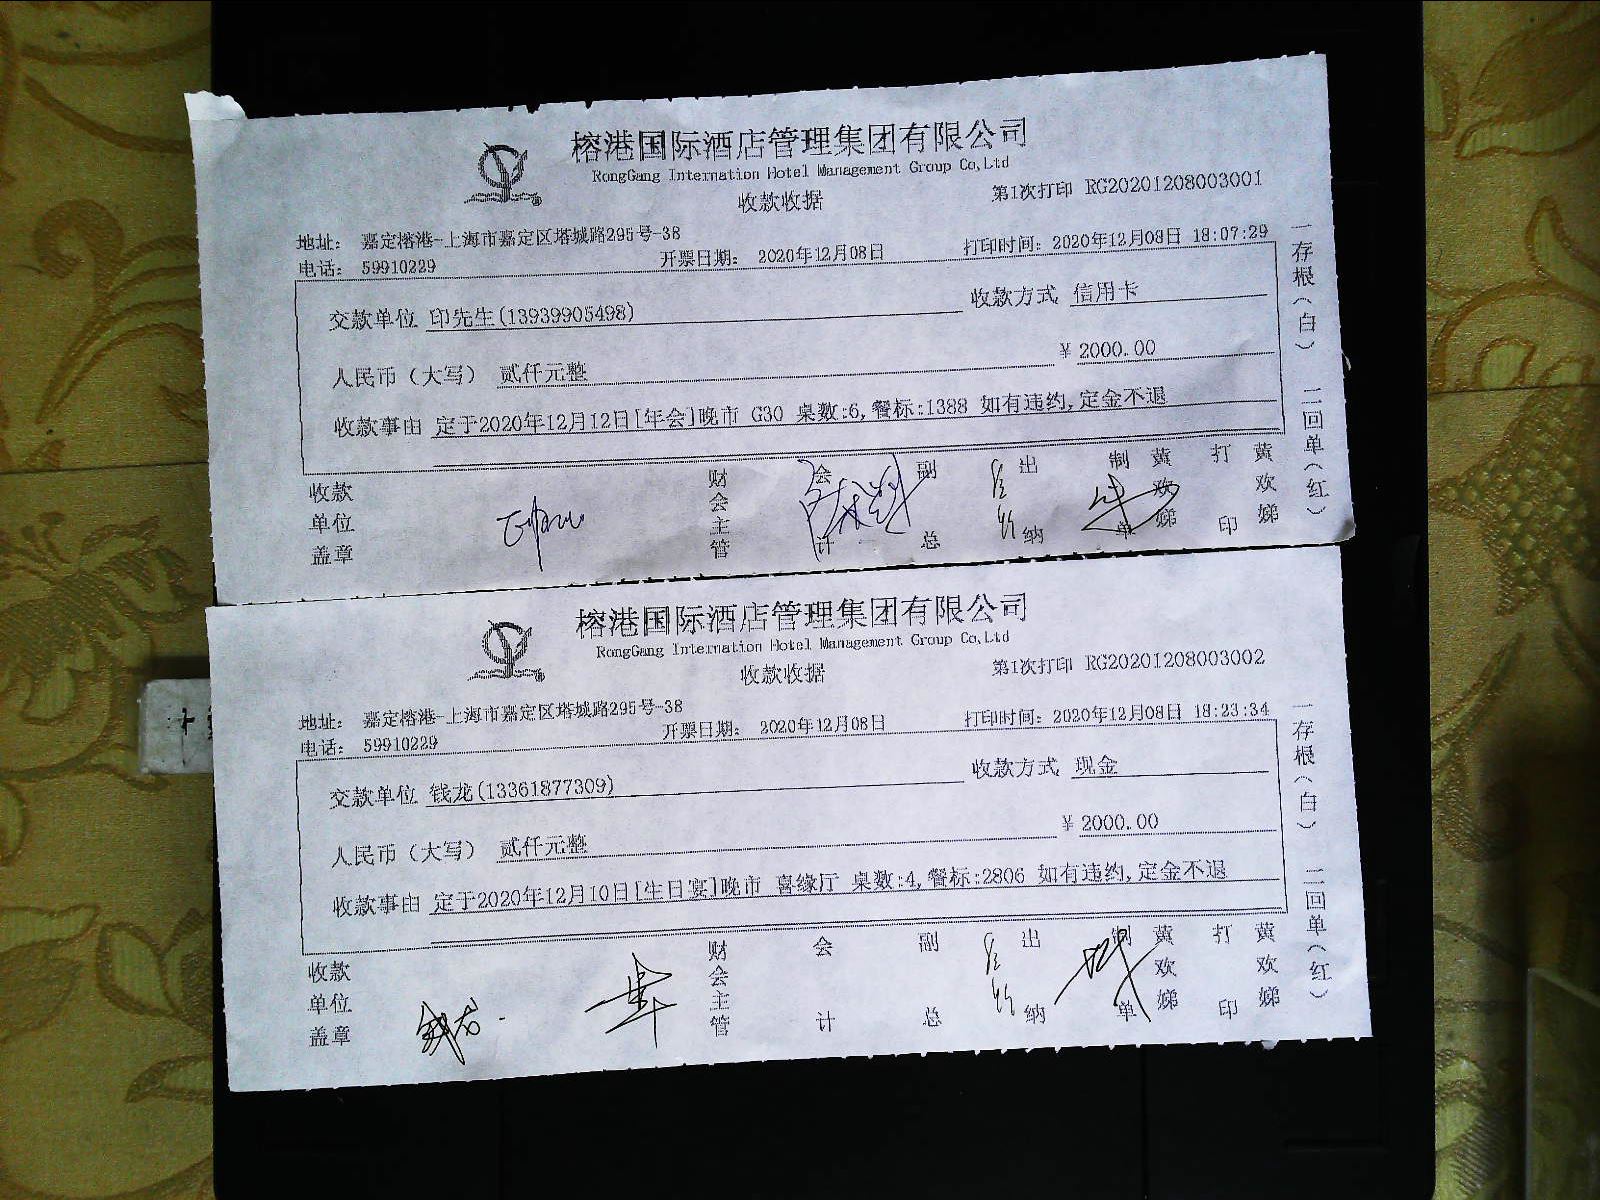 榕港国际酒店管理集团有限公司
RongGang Internation Hotel Management Group Co,Ltd
收款收据
第1次打印 RG20201208003001
地址： 嘉定榕港-上海市嘉定区塔城路295号-38
电话： 59910229 开票日期： 2020年12月08日 打印时间：2020年12月08日 18:07:29
交款单位 印先生(13939905498) 收款方式 信用卡
人民币（大写） 贰仟元整 ¥ 2000.00
收款事由 定于2020年12月12日[年会]晚市 G30 桌数:6,餐标:1388 如有违约,定金不退
收款单位盖章 财会主管 会计 副总 出纳 制单 黄欢娣 打印 黄欢娣
一存根（白） 二回单（红）
榕港国际酒店管理集团有限公司
RongGang Internation Hotel Management Group Co,Ltd
收款收据
第1次打印 RG20201208003002
地址： 嘉定榕港-上海市嘉定区塔城路295号-38
电话： 59910229 开票日期： 2020年12月08日 打印时间：2020年12月08日 18:23:34
交款单位 钱龙(13361877309) 收款方式 现金
人民币（大写） 贰仟元整 ¥ 2000.00
收款事由 定于2020年12月10日[生日宴]晚市 喜缘厅 桌数:4,餐标:2806 如有违约,定金不退
收款单位盖章 钱龙 财会主管 会计 副总 出纳 制单 黄欢娣 打印 黄欢娣
一存根（白） 二回单（红）